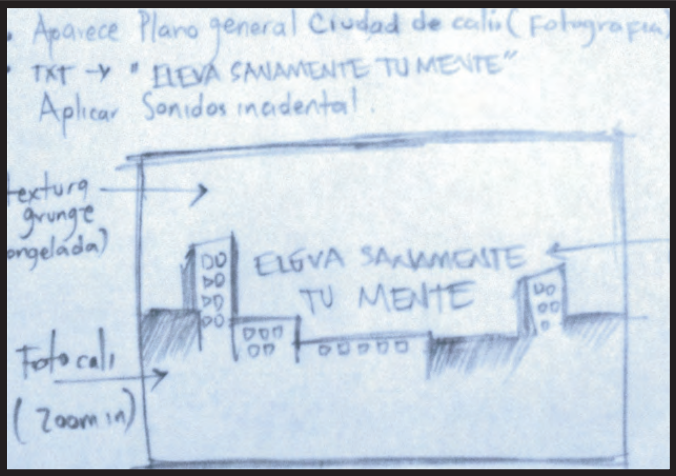 • Aparece Plano general Ciudad de cali (Fotografia)
• TXT → "ELEVA SANAMENTE TU MENTE"
Aplicar Sonidos incidental.
textura
grunge
ongelada)
ELEVA SANAMENTE
TU MENTE
Foto cali
(Zoom in)